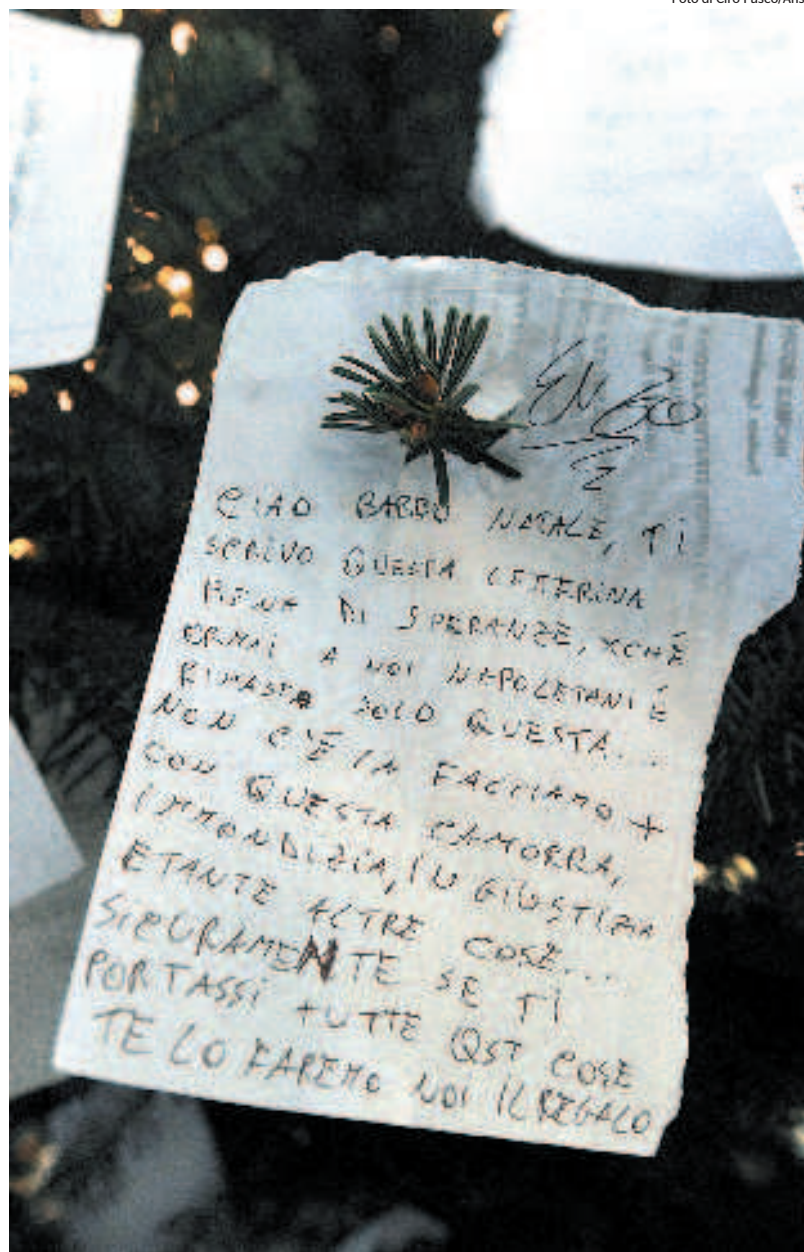 Foto di Ciro Fusco/Ans
CIAO BABBO NATALE, TI
SCRIVO QUESTA LETTERINA
PIENA DI SPERANZE, XCHÉ
ORMAI A NOI NAPOLETANI É
RIMASTA SOLO QUESTA...
NON C'É LA FACCIAMO +
CON QUESTA CAMORRA,
IMMONDIZIA, IN GIUSTIZIA
ETANTE ALTRE COSE...
SICURAMENTE SE TI
PORTASSI TUTTE QST COSE
TE LO FAREMO NOI IL REGALO